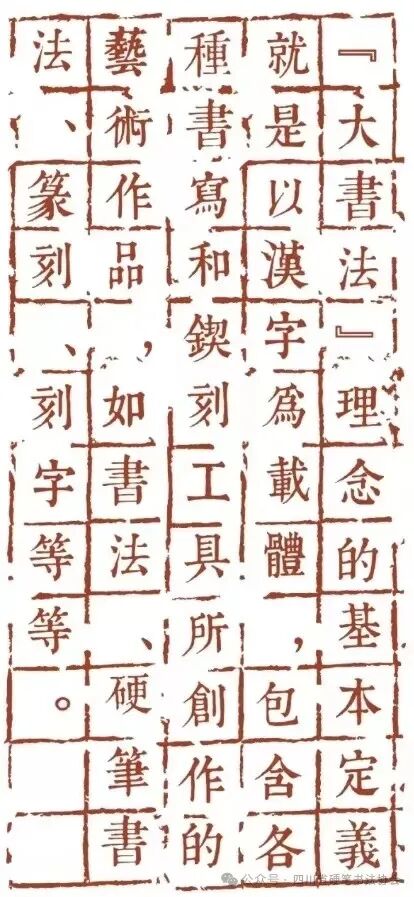 『大書法』理念的基本定義
就是以漢字爲載體，包含各
種書寫和鍥刻工具所創作的
藝術作品，如書法、硬筆書
法、篆刻、刻字等等。
公众号 · 四川省硬笔书法协会